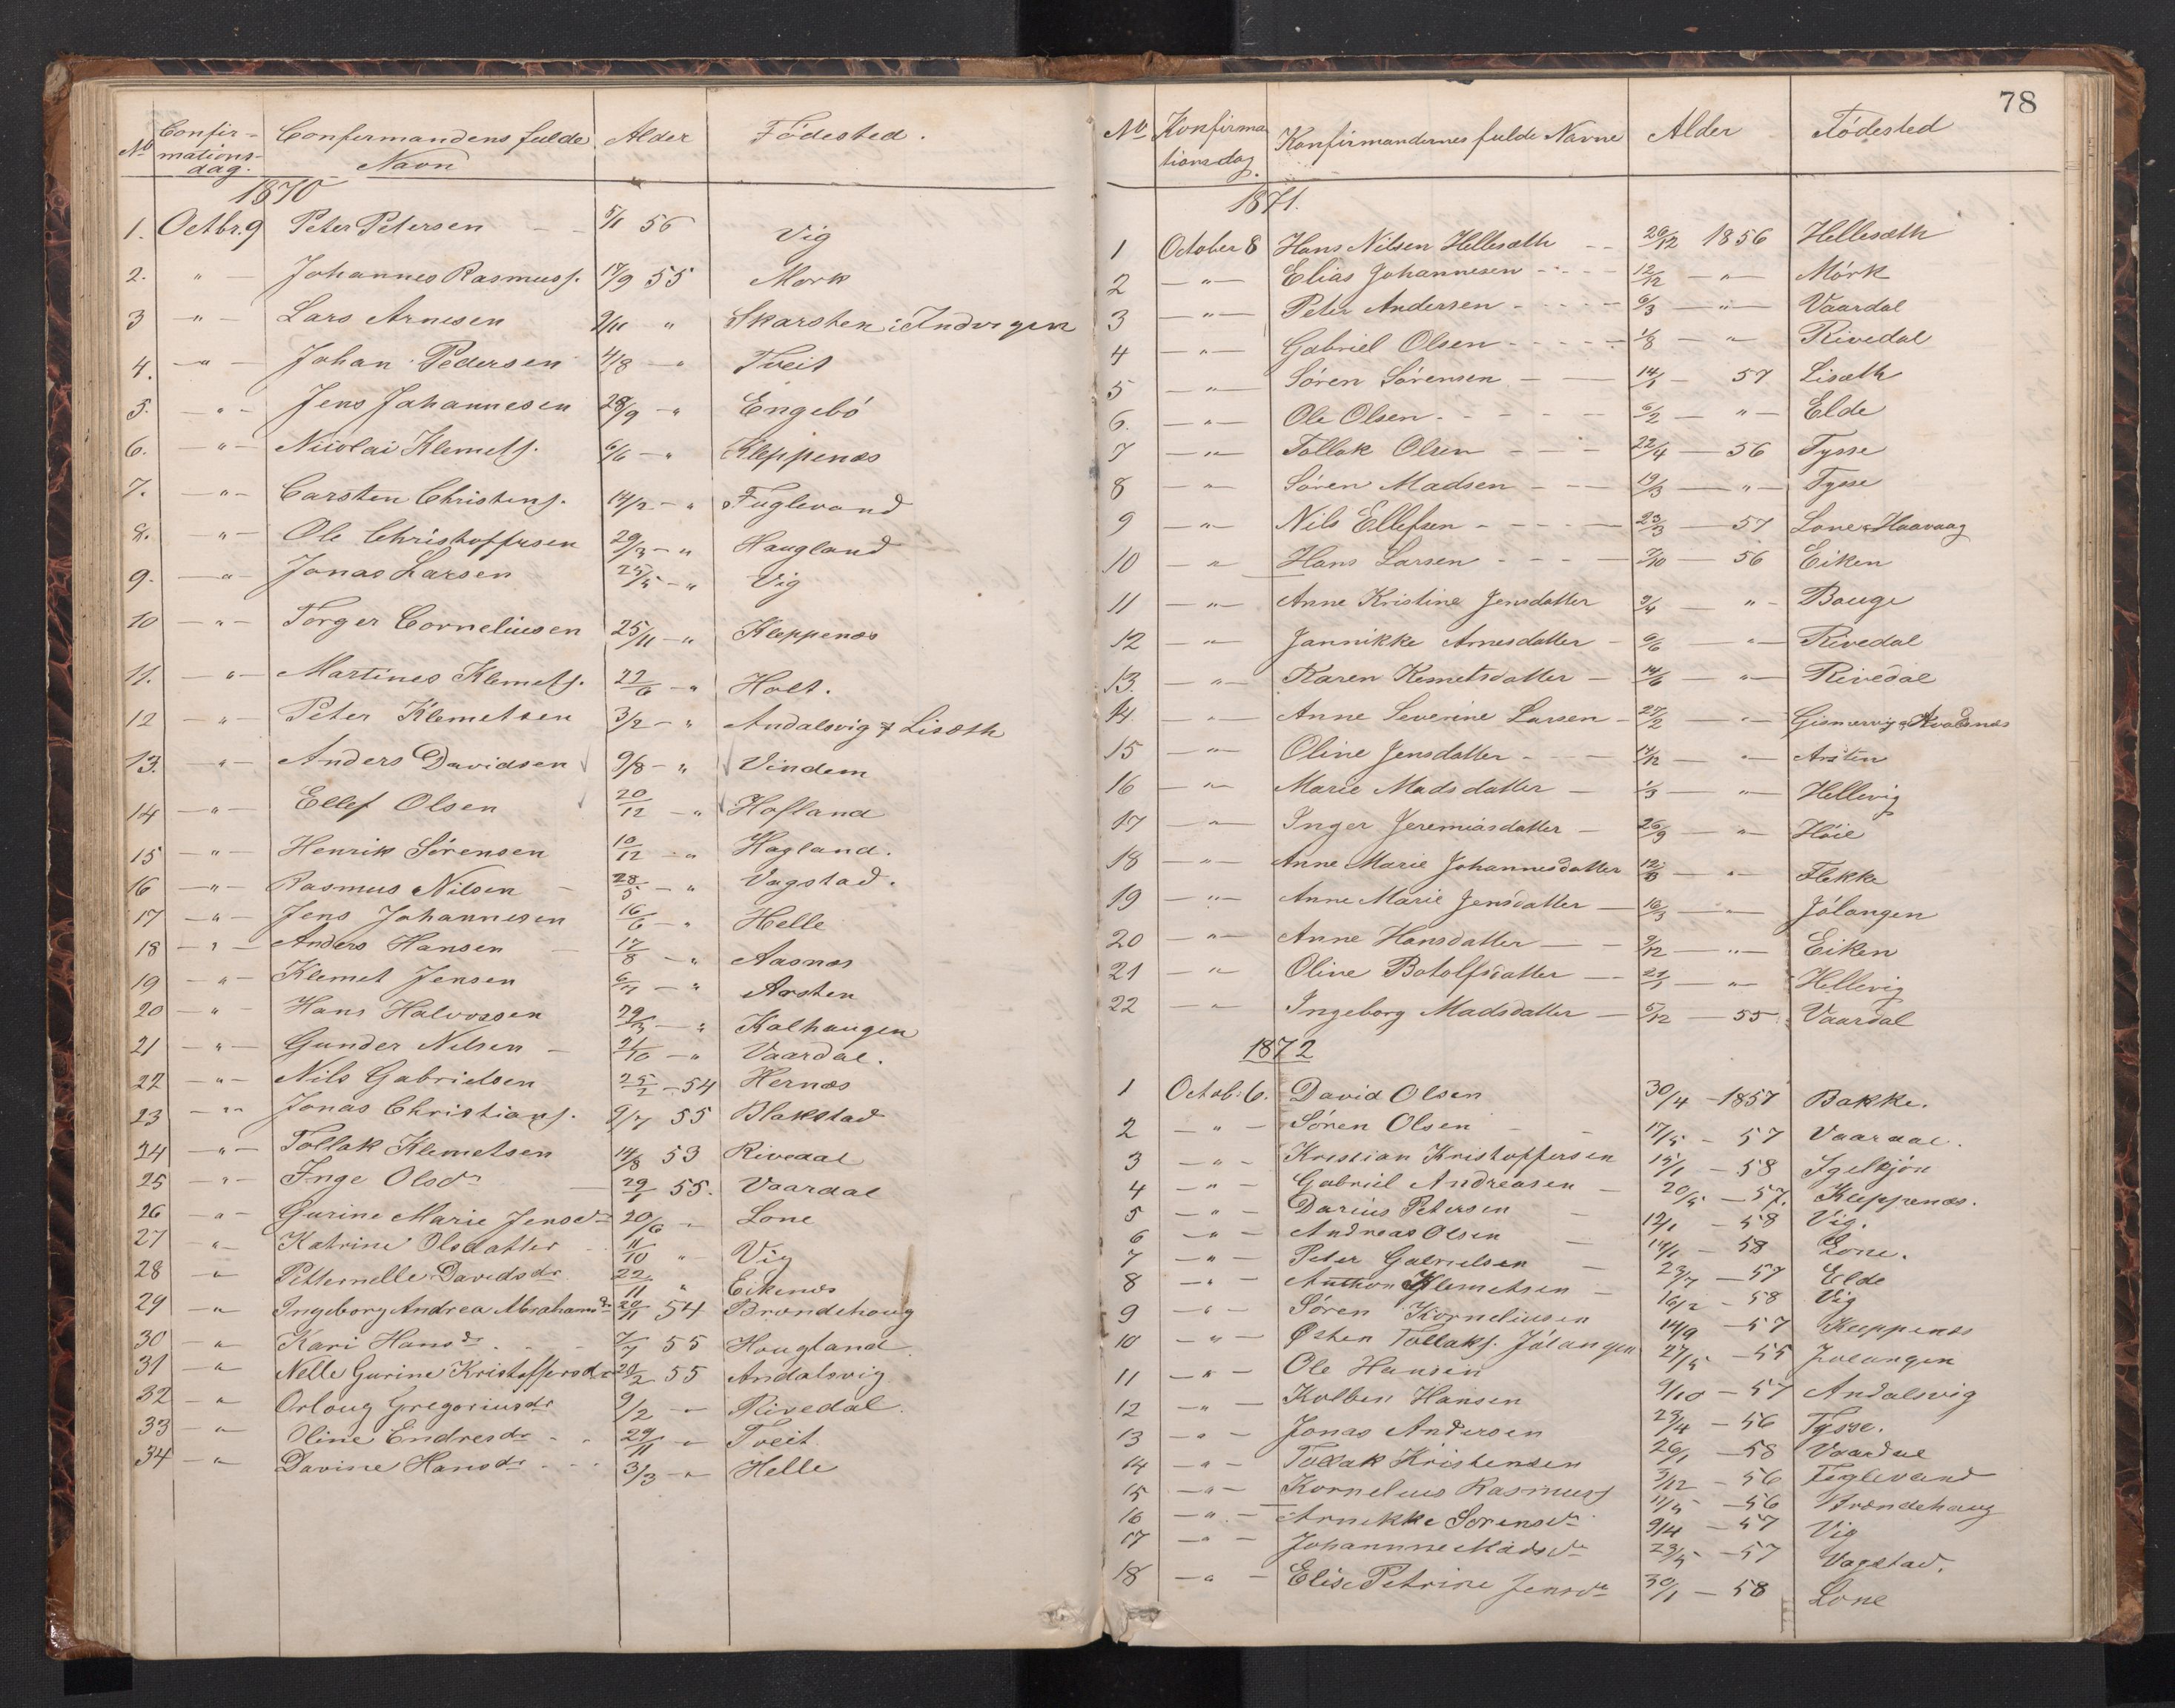 No Confirmationsdag. Confirmandens fulde Navn Alder Fødested.
1870
1. Octbr. 9 Peter Petersen 5/11 56 Vig
2. " Johannes Rasmuss. 17/9 55 Mørk
3 " Lars Arnesen 2/11 " Skarsten i Indvigen
4. " Johan Pedersen 4/8 " Tveit
5. " Jens Johannesen 28/9 " Engebö
6. " Nicolai Klemets. 6/6 " Kleppenæs
7. " Carsten Christens. 14/2 " Fuglevand
8. " Ole Christoffersen 29/3 " Haugland
9. " Jonas Larsen 25/5 " Vig
10 " Torger Corneliusen 25/11 " Kleppenæs
11. " Martines Klemets. 22/6 " Holt.
12 " Peter Klemetsen 3/2 " Andalsvig & Lisæth
13. " Anders Davidsen 9/8 " Vindem
14 " Ellef Olsen 20/12 " Hofland
15 " Henrik Sörensen 10/12 " Hagland.
16 " Rasmus Nilsen 28/5 " Vagstad.
17 " Jens Johannesen 16/6 " Helle
18 " Anders Hansen 17/8 " Aasnæs
19 " Klemet Jensen 6/7 " Arsten
20 " Hans Halvorsen 29/3 " Kalhaugen
21 " Gunder Nilsen 21/10 " Vaardal.
22 " Nils Gabrielsen 25/2 54 Hernæs
23 " Jonas Christians. 9/7 55 Blakstad
24 " Tollak Klemetsen 14/8 53 Rivedal
25 " Inge Olsdr 29/1 55. Vaardal
26 " Gurine Marie Jensdr 20/6 " Lone
27 " Katrine Olsdatter 11/10 " Vig
28 " Petternelle Davidsdr 22/11 " Eikenæs
29 " Ingeborg Andrea Abrahamsdr 20/11 54 Brændehoug
30 " Kari Hansdr 7/7 55 Hougland
31 " Nelle Gurine Kristoffersdr 20/2 55 Andalsvig
32 " Orloug Gregoriusdr 9/2 " Rivedal.
33 " Oline Endresdr 29/11 " Tveit
34 " Davine Hansdr 3/3 " Helle
78
No Konfirmationsdag. Konfirmandernes fulde Navne Alder Fødested
1871.
1 October 8 Hans Nilsen Hellesæth 26/12 1856 Hellesæth
2 " Elias Johannesen 12/12 " Mörk
3 " Peter Andersen 6/3 " Vaardal
4 " Gabriel Olsen 1/8 " Rivedal
5 " Sören Sörensen 14/1 57 Lisæth
6. " Ole Olsen 6/2 " Elde
7 " Tollak Olsen 22/4 56 Tysse
8 " Sören Madsen 19/3 " Tysse
9 " Nils Ellefsen 23/3 57 Lone & Haavaag
10 " Hans Larsen 7/10 56 Eiken
11 " Anne Kristine Jensdatter 9/4 " Bauge
12 " Jannikke Arnesdatter 6/6 " Rivedal
13. " Karen Kemetsdatter 14/6 " Rivedal
14. " Anne Severine Larsen 27/2 " Gismervig & Avalsnæs
15 " Oline Jensdatter 17/12 " Arsten
16 " Marie Madsdatter 1/3 " Hellevig
17 " Inger Jeremiasdatter 26/9 " Höie
18 " Anne Marie Johannesdatter 12/8 " Flekke
19 " Anne Marie Jensdatter 16/3 " Jölangen
20 " Anne Hansdatter 9/12 " Eiken
21 " Oline Botolfsdatter 21/1 " Hellevig
22 " Ingeborg Madsdatter 5/12 55 Vaardal
1872
1 Octob: 6. David Olsen 30/4 1857 Bakke.
2 " Sören Olsen 17/5 57 Vaardal.
3 " Kristian Kristoffersen 15/1 58 Igelkjön
4 " Gabriel Andreasen 20/5 57. Kleppenæs.
5 " Darius Petersen 12/1 58 Vig.
6 " Andreas Olsen 14/1 58 Lone.
7 " Peter Gabrielsen 23/7 57 Elde
8 " Anthon Klemetsen 16/2 58 Vig
9 " Sören Korneliusen 14/9 57 Kleppenæs
10 " Østen Tollaks. Jölangen 27/5 55 Jolangen
11 " Ole Hansen 9/10 57 Andalsvig
12 " Kolben Hansen 23/4 56 Tysse.
13 " Jonas Andersen 26/1 58 Vaardal
14 " Tollak Kristensen 3/12 56 Foglevand
15 " Kornelius Rasmuss 11/5 56 Brændehaug
16 " Arnikke Sørensdr 9/4 57 Vig
17 " Johannne Madsdr 23/5 57 Vagstad.
18 " Elise Petrine Jensdr 30/1 58 Lone